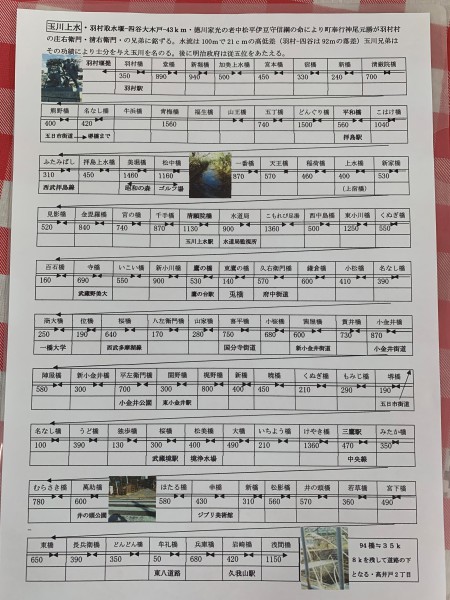 玉川上水・羽村取水堰-四谷大木戸-43km・徳川家光の老中松平伊豆守信綱の命により町奉行神尾元勝が羽村村
の庄右衛門・清右衛門・の兄弟に銘ずる。水流は100mで21cmの高低差(羽村-四谷は92mの落差)玉川兄弟は
その功績により士分を与え玉川を名のる。後に明治政府は従五位をあたえる。
羽村堰堤 羽村橋 堂橋 新堀橋 加美上水橋 宮本橋 宿橋 新橋 清厳院橋
350 890 940 500 450 350 560 400
羽村駅
熊野橋 名なし橋 牛浜橋 青梅橋 福生橋 山王橋 五丁橋 どんぐり橋 平和橋 こはけ橋
400 420 1560 740 1500 560 1040
五日市街道 堺橋まで 拝島駅
ふたみばし 拝島上水橋 美堀橋 松中橋 一番橋 天王橋 稲荷橋 上水橋 新家橋
310 450 1460 1160 870 570 460 400 530
西武拝島線 昭和の森 ゴルフ場 (上宿橋)
見影橋 金毘羅橋 宮の橋 千手橋 清願院橋 水道局 こもれび足湯 西中島橋 東小川橋 くぬぎ橋
520 840 740 870 1130 900 1360 500 1250 550
玉川上水駅 水道局監視所
百石橋 寺橋 いこい橋 新小川橋 鷹の橋 東鷹の橋 久右衛門橋 鎌倉橋 小松橋 名なし橋
160 690 550 900 530 140 600 410 390
武蔵野美大 鷹の台駅 兎橋 府中街道
商大橋 位橋 桜橋 八左衛門橋 山家橋 喜平橋 小桜橋 茜屋橋 貫井橋 小金井橋
250 190 640 170 280 750 680 600 370 870
一橋大学 西武多摩湖線 国分寺街道 新小金井街道 小金井街道
陣屋橋 新小金井橋 平右衛門橋 関野橋 梶野橋 新橋 曙橋 くぬぎ橋 もみじ橋 堺橋
580 300 700 300 800 400 450 210 290 190
小金井公園 東小金井駅 五日市街道
名なし橋 うど橋 独歩橋 桜橋 松美橋 大橋 いちよう橋 けやき橋 三鷹駅 みたか橋
100 390 130 300 220 490 210 1360 470 350
武蔵境駅 境浄水場 中央線
むらさき橋 萬助橋 ほたる橋 幸橋 新橋 松影橋 井の頭橋 若草橋 宮下橋
780 600 580 430 310 260 450 310 240
井の頭公園 ジブリ美術館
東橋 長兵衛橋 どんどん橋 牟礼橋 兵庫橋 岩崎橋 浅間橋
650 390 350 50 680 480 1150
東八道路 久我山駅
94橋≒35k
8kを残して道路の下
となる・高井戸2丁目